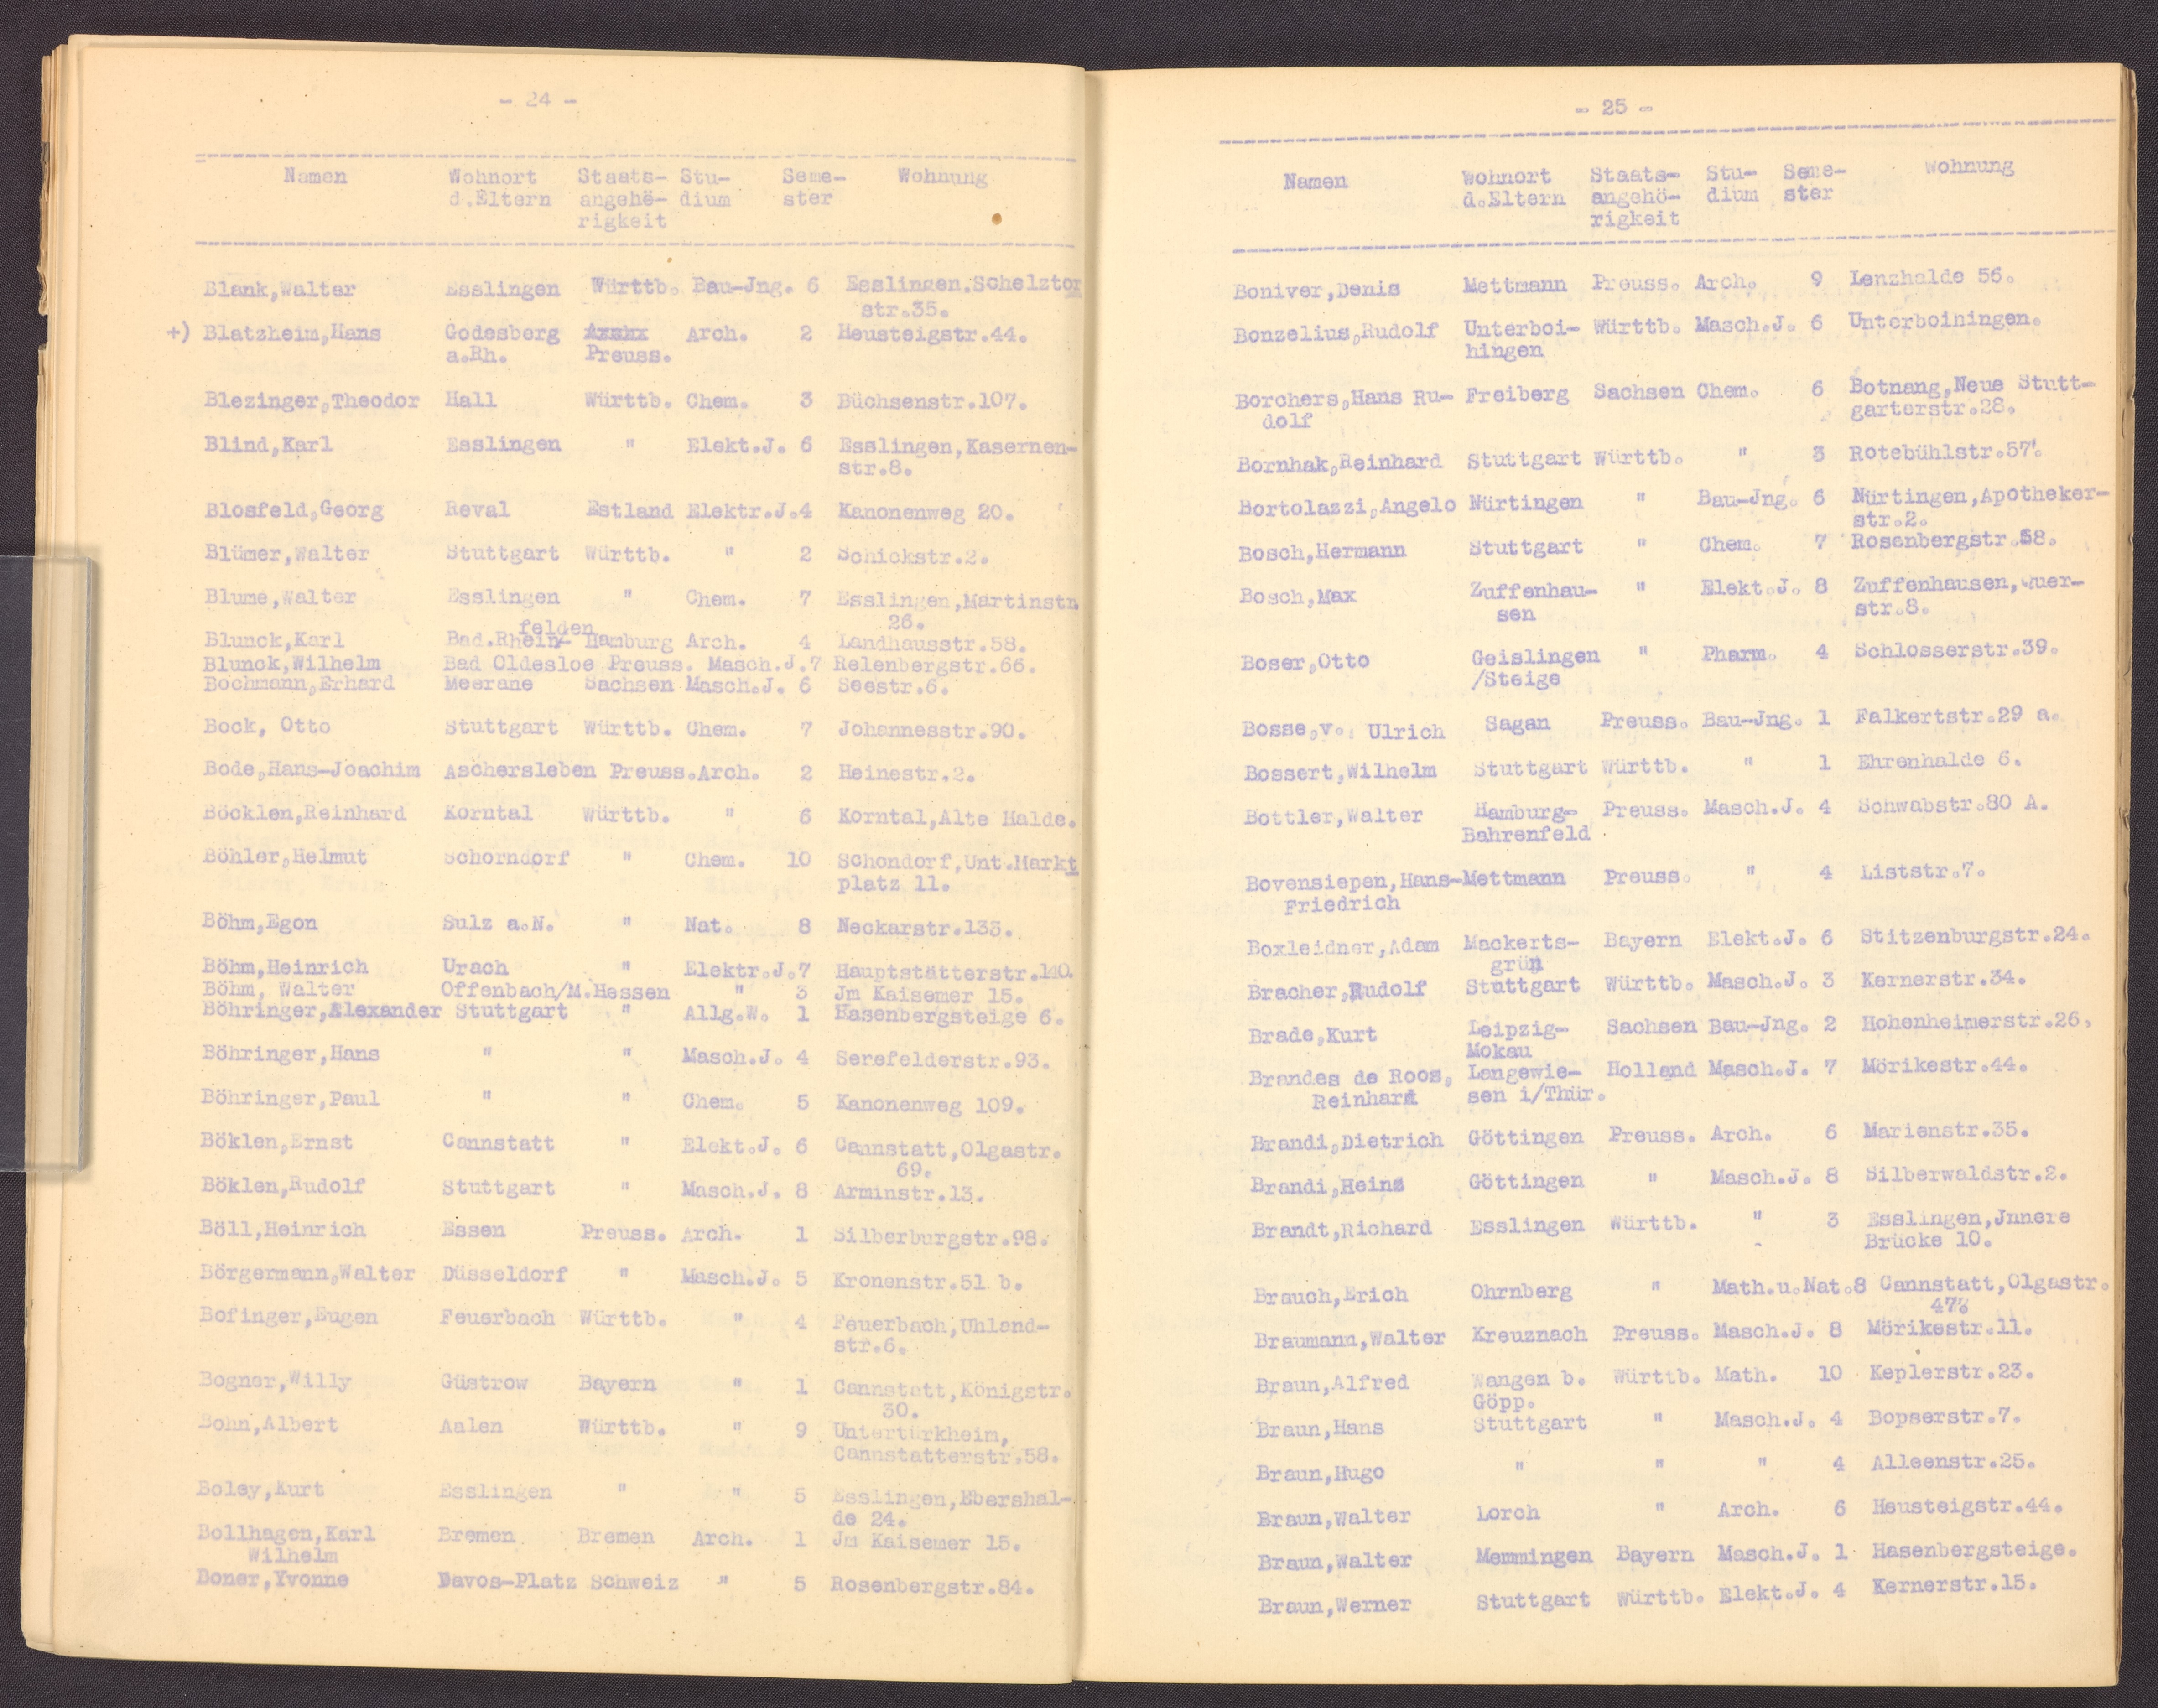 - 24 -
Namen Wohnort Staats- Stu- Seme- Wohnung
d.Eltern angehö- dium ster
rigkeit
Blank,Walter Esslingen Württb. Bau-Jng. 6 Esslingen.Schelztor
str.35.
+) Blatzheim,Hans Godesberg Arch. 2 Heusteigstr.44.
a.Rh. Preuss.
Blezinger,Theodor Hall Württb. Chem. 3 Büchsenstr.107.
Blind,Karl Esslingen " Elekt.J. 6 Esslingen,Kasernen-
str.8.
Blosfeld,Georg Reval Estland Elektr.J.4 Kanonenweg 20.
Blümer,Walter Stuttgart Württb. " 2 Schickstr.2.
Blume,Walter Esslingen " Chem. 7 Esslingen,Martinstr.
felden 26.
Blunck,Karl Bad.Rhein- Hamburg Arch. 4 Landhausstr.58.
Blunck,Wilhelm Bad Oldesloe Preuss. Masch.J.7 Relenbergstr.66.
Bochmann,Erhard Meerane Sachsen Masch.J. 6 Seestr.6.
Bock, Otto Stuttgart Württb. Chem. 7 Johannesstr.90.
Bode,Hans-Joachim Aschersleben Preuss.Arch. 2 Heinestr.2.
Böcklen,Reinhard Korntal Württb. " 6 Korntal,Alte Halde.
Böhler,Helmut Schorndorf " Chem. 10 Schondorf,Unt.Markt
platz 11.
Böhm,Egon Sulz a.N. " Nat. 8 Neckarstr.133.
Böhm,Heinrich Urach " Elektr.J.7 Hauptstätterstr.140.
Böhm, Walter Offenbach/M.Hessen " 3 Jm Kaisemer 15.
Böhringer,Alexander Stuttgart " Allg.W. 1 Hasenbergsteige 6.
Böhringer,Hans " " Masch.J. 4 Serefelderstr.93.
Böhringer,Paul " " Chem. 5 Kanonenweg 109.
Böklen,Ernst Cannstatt " Elekt.J. 6 Cannstatt,Olgastr.
69.
Böklen,Rudolf Stuttgart " Masch.J. 8 Arminstr.13.
Böll,Heinrich Essen Preuss. Arch. 1 Silberburgstr.98.
Börgermann,Walter Düsseldorf " Masch.J. 5 Kronenstr.51 b.
Bofinger,Eugen Feuerbach Württb. " 4 Feuerbach,Uhland-
str.6.
Bogner,Willy Güstrow Bayern " 1 Cannstatt,Königstr.
30.
Bohn,Albert Aalen Württb. " 9 Untertürkheim,
Cannstatterstr.58.
Boley,Kurt Esslingen " " 5 Esslingen,Ebershal-
de 24.
Bollhagen,Karl Bremen Bremen Arch. 1 Jm Kaisemer 15.
Wilhelm
Boner,Yvonne Davos-Platz Schweiz " 5 Rosenbergstr.84.
- 25 -
Namen Wohnort Staats- Stu- Seme- Wohnung
d.Eltern angehö- dium ster
rigkeit
Boniver,Denis Mettmann Preuss. Arch. 9 Lenzhalde 56.
Bonzelius,Rudolf Unterboi- Württb. Masch.J. 6 Unterboihingen.
hingen
Borchers,Hans Ru- Freiberg Sachsen Chem. 6 Botnang,Neue Stutt-
dolf garterstr.28.
Bornhak,Reinhard Stuttgart Württb. " 3 Rotebühlstr.57.
Bortolazzi,Angelo Nürtingen " Bau-Jng. 6 Nürtingen,Apotheker-
str.2.
Bosch,Hermann Stuttgart " Chem. 7 Rosenbergstr.58.
Bosch,Max Zuffenhau- " Elekt.J. 8 Zuffenhausen,Quer-
sen str.8.
Boser,Otto Geislingen " Pharm. 4 Schlosserstr.39.
/Steige
Bosse,v. Ulrich Sagan Preuss. Bau-Jng. 1 Falkertstr.29 a.
Bossert,Wilhelm Stuttgart Württb. " 1 Ehrenhalde 6.
Bottler,Walter Hamburg- Preuss. Masch.J. 4 Schwabstr.80 A.
Bahrenfeld
Bovensiepen,Hans- Mettmann Preuss. " 4 Liststr.7.
Friedrich
Boxleidner,Adam Mackerts- Bayern Elekt.J. 6 Stitzenburgstr.24.
grün
Bracher,Rudolf Stuttgart Württb. Masch.J. 3 Kernerstr.34.
Brade,Kurt Leipzig- Sachsen Bau-Jng. 2 Hohenheimerstr.26.
Mokau
Brandes de Roos, Langewie- Holland Masch.J. 7 Mörikestr.44.
Reinhard sen i/Thür.
Brandi,Dietrich Göttingen Preuss. Arch. 6 Marienstr.35.
Brandi,Heinz Göttingen " Masch.J. 8 Silberwaldstr.2.
Brandt,Richard Esslingen Württb. " 3 Esslingen,Jnnere
Brücke 10.
Brauch,Erich Ohrnberg " Math.u.Nat.8 Cannstatt,Olgastr.
Braumann,Walter Kreuznach Preuss. Masch.J. 8 Mörikestr.11.
Braun,Alfred Wangen b. Württb. Math. 10 Keplerstr.23.
Göpp.
Braun,Hans Stuttgart " Masch.J. 4 Bopserstr.7.
Braun,Hugo " " " 4 Alleenstr.25.
Braun,Walter Lorch " Arch. 6 Heusteigstr.44.
Braun,Walter Memmingen Bayern Masch.J. 1 Hasenbergsteige.
Braun,Werner Stuttgart Württb. Elekt.J. 4 Kernerstr.15.